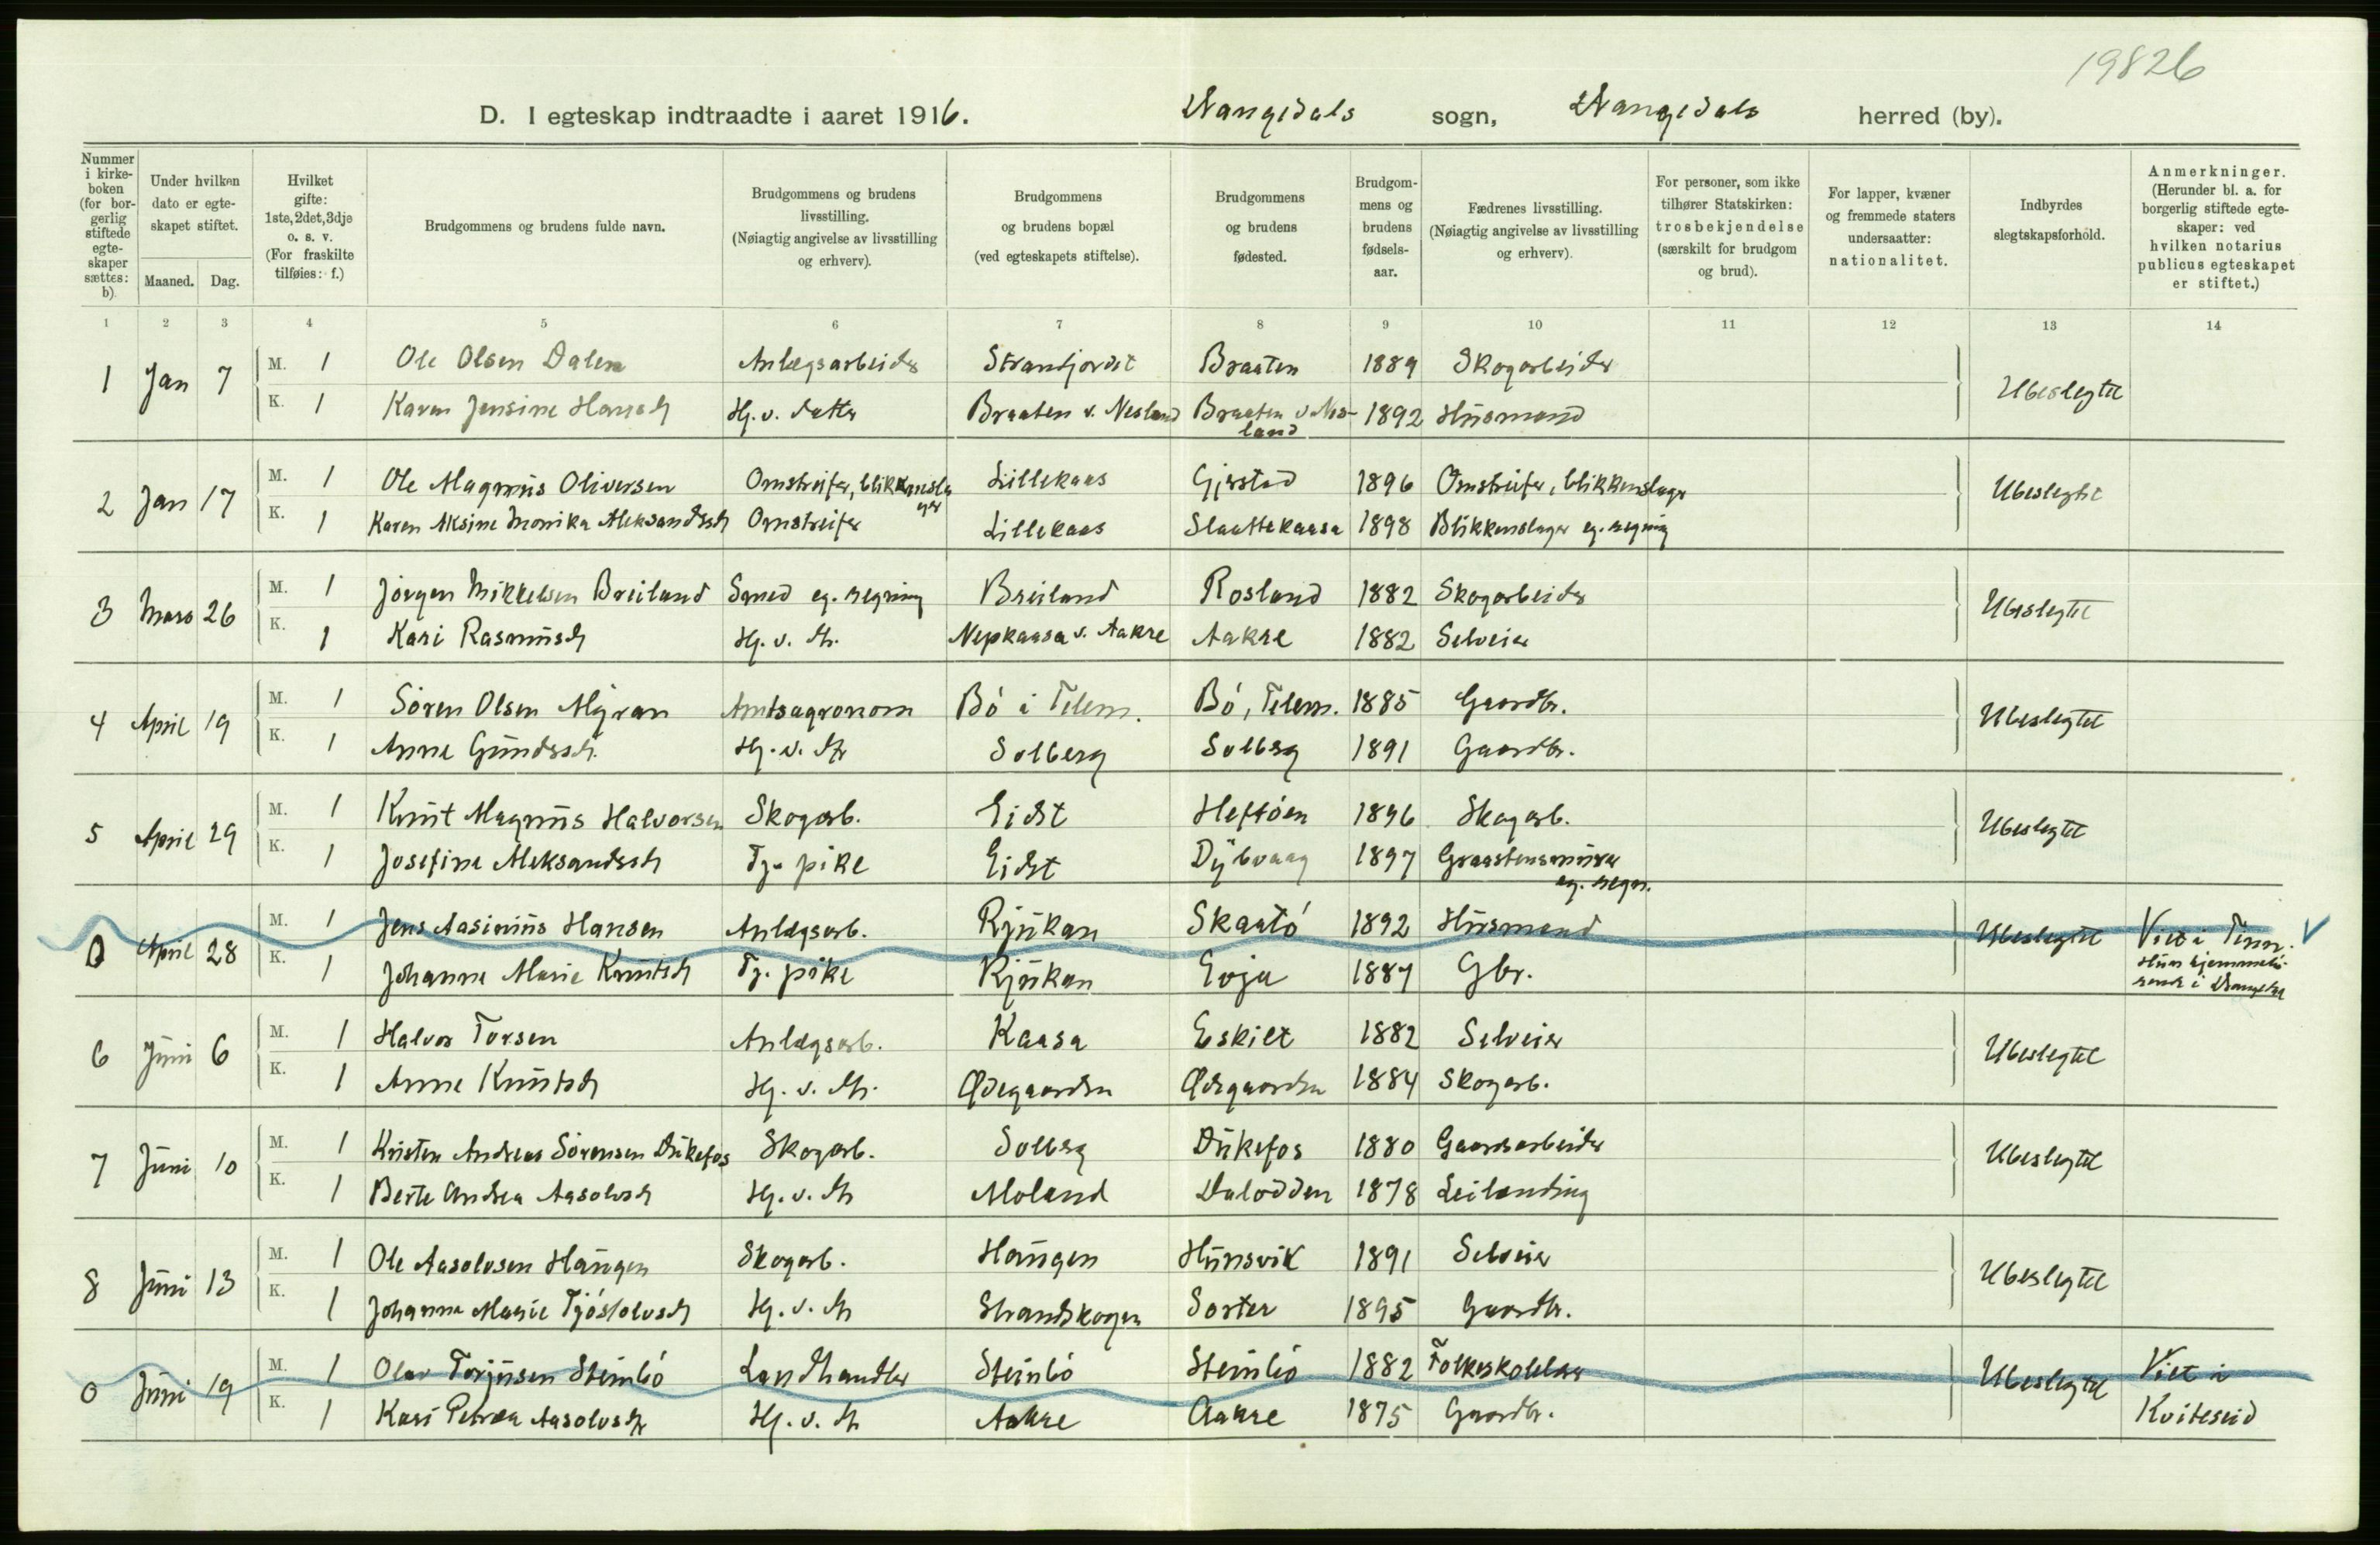 19826
D. I egteskap indtraadte i aaret 1916. Drangedals sogn, Drangedals herred (by).
Nummer i kirkeboken (for borgerlig stiftede egteskaper sættes: b).
Under hvilken dato er egteskapet stiftet.
Maaned. Dag.
Hvilket gifte: 1ste, 2det, 3dje o. s. v. (For fraskilte tilføies: f.)
Brudgommens og brudens fulde navn.
Brudgommens og brudens livsstilling. (Nøiagtig angivelse av livsstilling og erhverv).
Brudgommens og brudens bopæl (ved egteskapets stiftelse).
Brudgommens og brudens fødested.
Brudgommens og brudens fødselsaar.
Fædrenes livsstilling. (Nøiagtig angivelse av livsstilling og erhverv).
For personer, som ikke tilhører Statskirken: trosbekjendelse (særskilt for brudgom og brud).
For lapper, kvæner og fremmede staters undersaatter: nationalitet.
Indbyrdes slegtskapsforhold.
Anmerkninger. (Herunder bl. a. for borgerlig stiftede egteskaper: ved hvilken notarius publicus egteskapet er stiftet.)
1 2 3 4 5 6 7 8 9 10 11 12 13 14
1 Jan 7 M. 1 Ole Olsen Dalen Anlægsarbeider Stranfjordet Braaten 1889 Skogarbeider Ubeslegtet
K. 1 Karen Jensine Hansdt Hj. v. datter Braaten v. Nesland Braaten v Nesland 1892 Husmand
2 Jan 17 M. 1 Ole Magnus Oliversen Omstreifer, blikkenslager Lillekaas Gjerstad 1896 Omstreifer, blikkenslager Ubeslegtet
K. 1 Karen Aksine Monika Aleksandsdt Omstreifer Lillekaas Slaattekaasa 1898 Blikkenslager eg. regning
3 Mars 26 M. 1 Jörgen Mikkelsen Breiland Smed eg. regning Breiland Rosland 1882 Skogarbeider Ubeslegtet
K. 1 Kari Rasmusdt Hj. v. dt. Nepkaasa v. Aakre Aakre 1882 Selveier
4 April 19 M. 1 Sören Olsen Myran Amtsagronom Bó i Telem. Bó, Telem. 1885 Gaardbr. Ubeslegtet
K. 1 Anne Gundersdt. Hj. v. dt Solberg Solberg 1891 Gaardbr.
5 April 29 M. 1 Knut Magnus Halvorsen Skogarb. Eidet Heftöen 1896 Skogarb. Ubeslegtet
K. 1 Josefine Aleksandsdt Tj. pike Eidet Dybvaag 1897 Graastensmurer eg. regn.
0 April 28 M. 1 Jens Aasinius Hansen Anlægsarb. Rjukan Skaató 1892 Husmand Ubeslegtet Viet i Tinn. V
K. 1 Johanne Marie Knutsdt Tj. pike Rjukan Evja 1887 Gbr. Hun hjemmehörende i Drangedal
6 Juni 6 M. 1 Halvor Torsen Anlægsarb. Kaasa Eskilt 1882 Selveier Ubeslegtet
K. 1 Anne Knutsdt Hj. v. dt. Ødegaarden Ødegaarden 1884 Skogarb.
7 Juni 10 M. 1 Kristen Andreas Sörensen Dukefos Skogarb. Solberg Dukefos 1880 Gaardsarbeider Ubeslegtet
K. 1 Berte Andrea Aasolvsdt Hj. v. dt Moland Dalodden 1878 Leilending
8 Juni 13 M. 1 Ole Aasolvsen Haugen Skogarb. Haugen Hunsvik 1891 Selveier Ubeslegtet
K. 1 Johanne Marie Tjöstolvsdt Hj. v. dt Strandskogen Sorter 1895 Gaardbr.
0 Juni 19 M. 1 Olav Torjusen Steinbó Landhandler Steinbó Steinbó 1882 Folkeskolelær Ubeslegtet Viet i
K. 1 Kari Petrea Aasolvsdt Hj. v. dt Aakre Aakre 1875 Gaardbr. Kviteseid